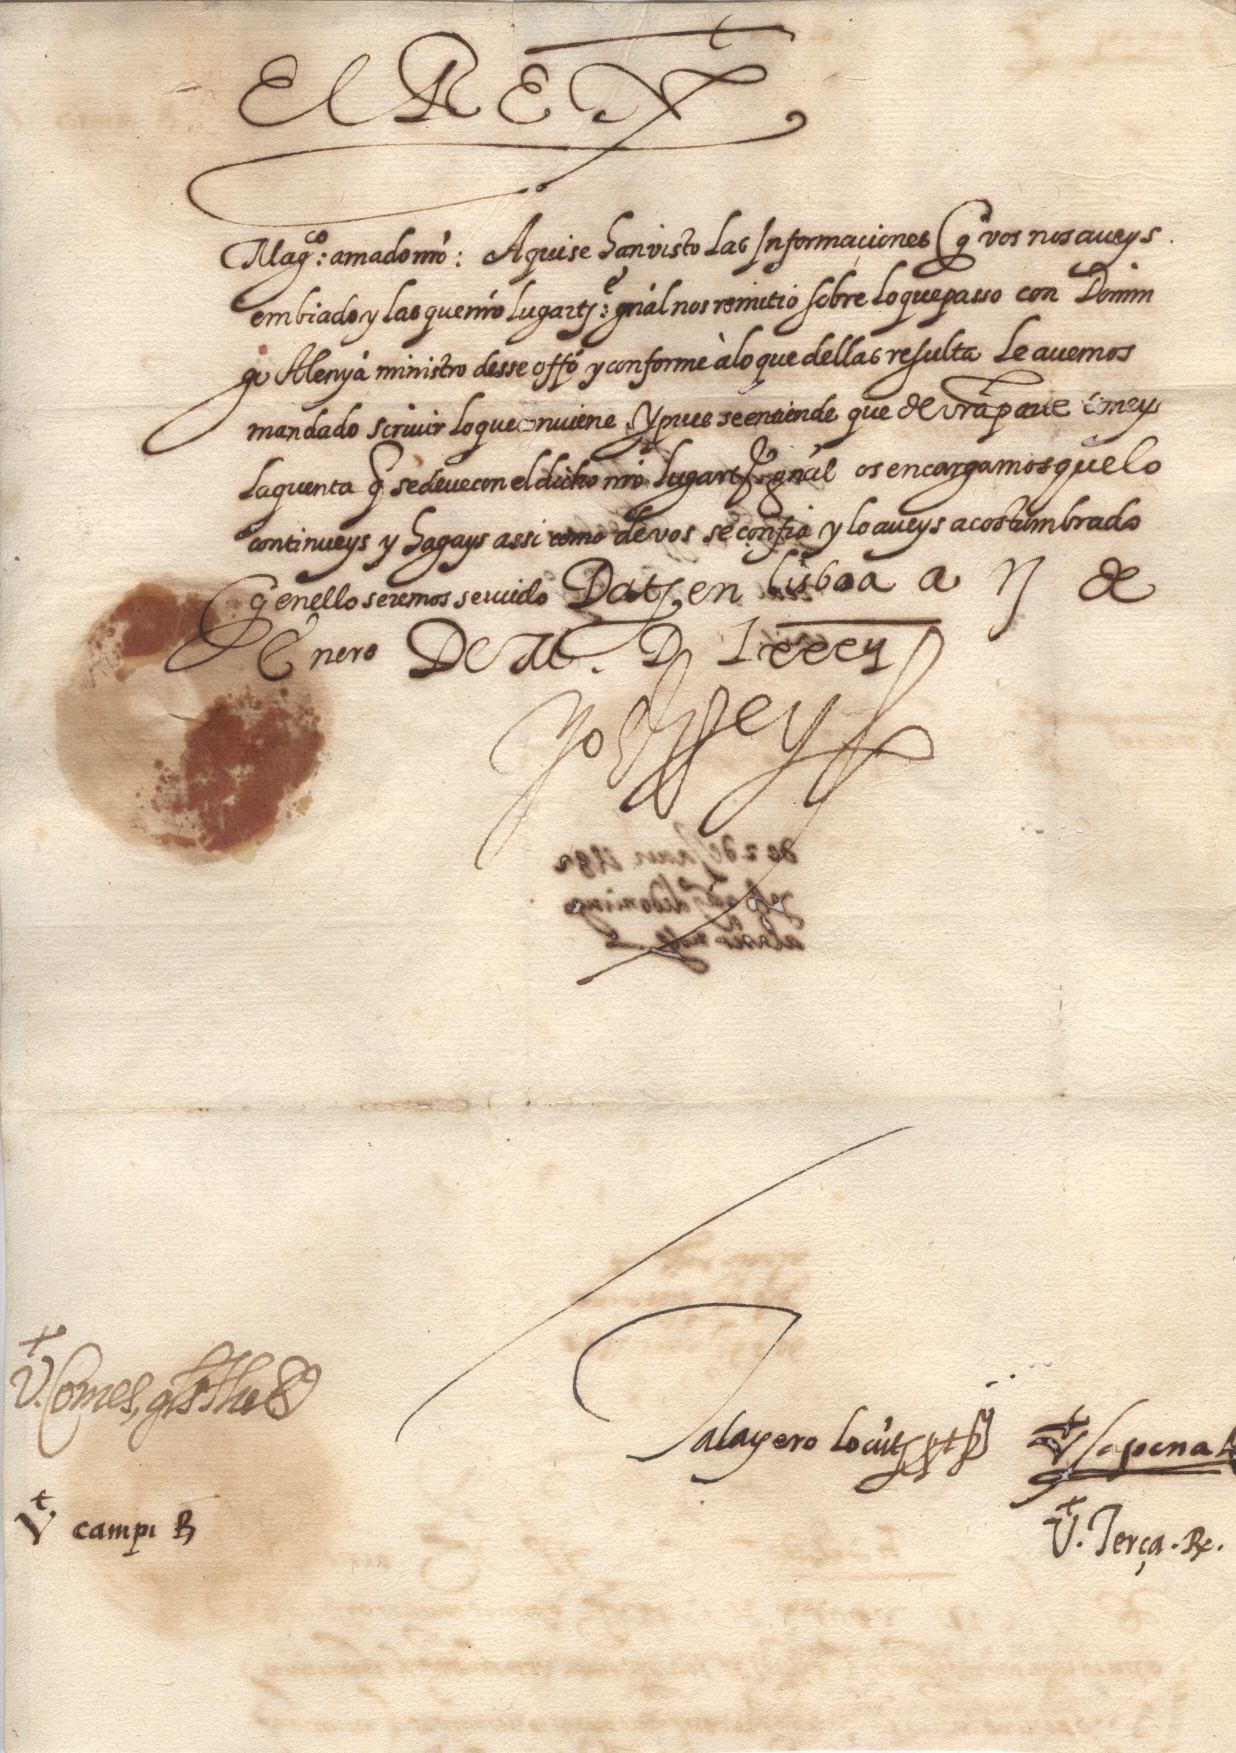 El REY
Mag.co amado nr̃o: Aqui se han visto las Informaciones q̃ vos nos aueys
embiado y las que nr̃o lugartᵉ: gñal nos remitio sobre lo que passo con Domin
go Alenyà ministro desse offº y conforme à lo que dellas resulta le auemos
mandado scriuir lo que conuiene. Y pues se entiende que de vr̃a parte teneys
la quenta q̃ se deue con el dicho nr̃o lugartᵉ gñal os encargamos que lo
continueys y hagays assi como de vos se confia y lo aueys acostumbrado
q̃ en ello seremos seruido Datt. en Lisboa a IJ de
Enero De M. D Lxxxij
Yo el Rey
V.t Comes, gñlis Thes.
Talayero locũt. ptͪ
V.t Sapena R.
V.t campi R.
V.t Terça. R.